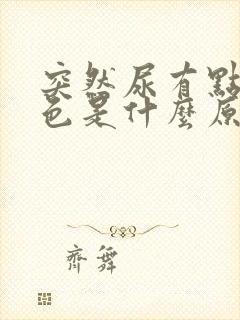 突然尿有點
色是什麼原
齊舞